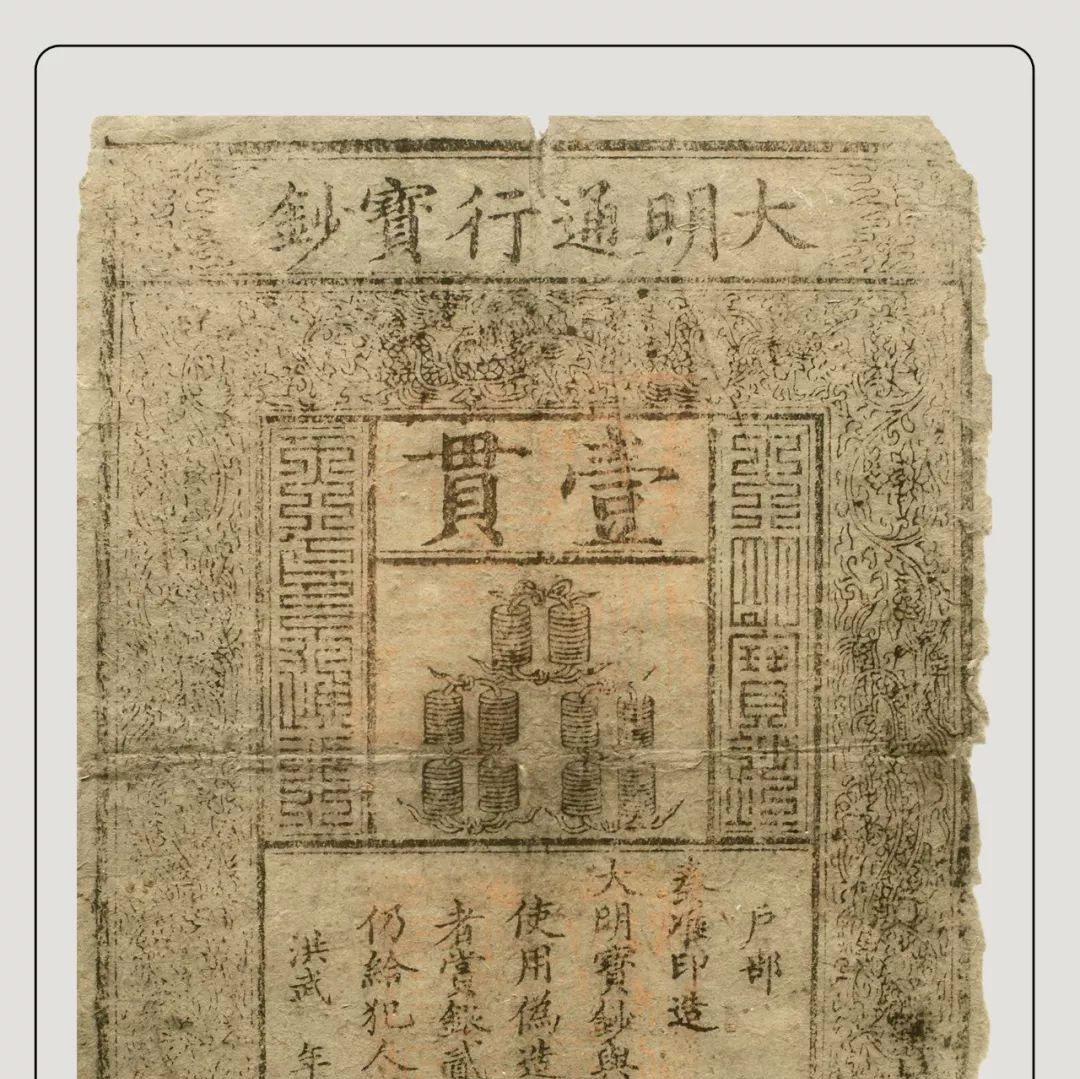 大明通行寶鈔
壹貫
大明寶鈔
天下通行
戶部
奏准印造
大明寶鈔與
使用偽造
者賞銀貳
仍給犯人
洪武 年